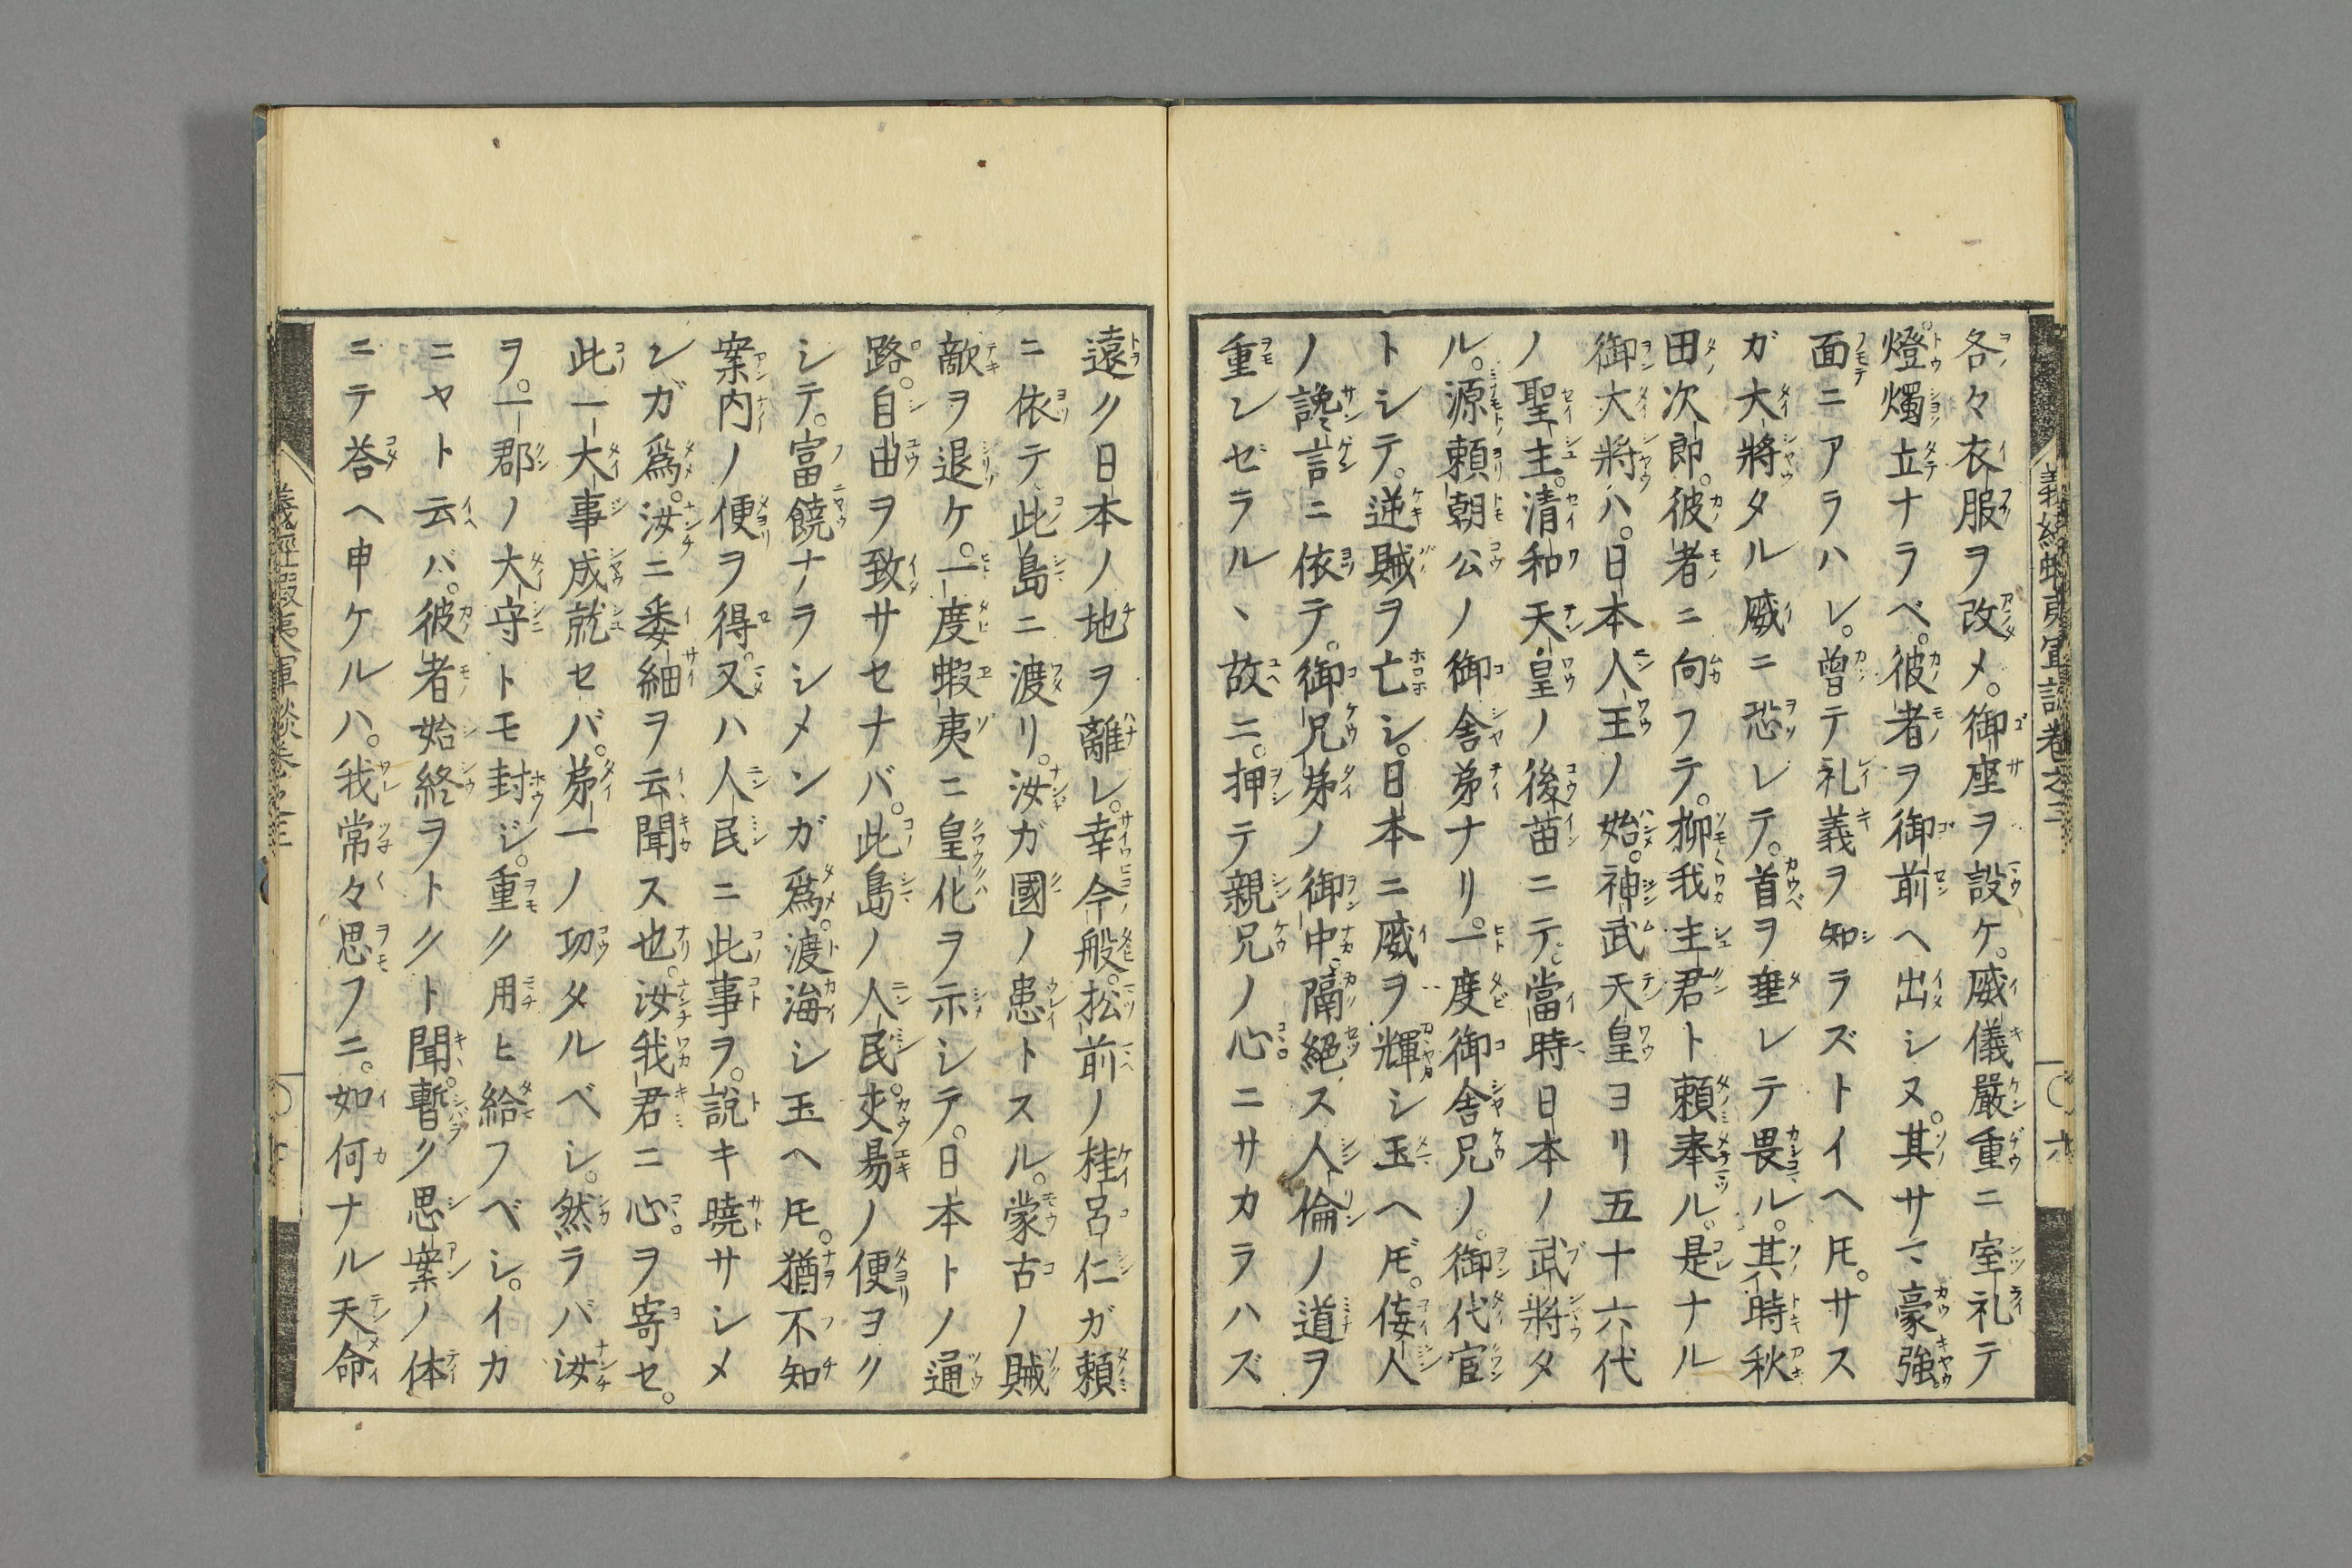 各々衣服ヲ改メ。御座ヲ設ケ。威儀嚴重ニ室礼テ
燈燭立ナラベ。彼者ヲ御前ヘ出シヌ。其サマ豪強。
面ニアラハレ。曽テ礼義ヲ知ラズトイヘ𪜈。サス
ガ大將タル威ニ恐レテ。首ヲ垂レテ畏ル。其時秋
田次郎。彼者ニ向フテ。抑我主君ト頼奉ル。是ナル
御大將ハ。日本人王ノ始。神武天皇ヨリ五十六代
ノ聖主。清和天皇ノ後苗ニテ。當時日本ノ武將タ
ル。源頼朝公ノ御舎弟ナリ。一度御舎兄ノ。御代官
トシテ。逆賊ヲ亡シ。日本ニ威ヲ輝シ玉ヘ𪜈。侫人
ノ讒言ニ依テ。御兄弟ノ御中。隔絶ス人倫ノ道ヲ
重ンゼラルヽ故ニ。押テ親兄ノ心ニサカラハズ
遠ク日本ノ地ヲ離レ。幸今般。松前ノ桂呂仁ガ頼
ニ依テ此島ニ渡リ。汝ガ國ノ患トスル。蒙古ノ賊
敵ヲ退ケ。一度蝦夷ニ皇化ヲ示シテ。日本トノ通
路。自由ヲ致サセナバ。此島ノ人民。交易ノ便ヨク
シテ。富饒ナラシメンガ爲。渡海シ玉ヘ𪜈。猶不知
案内ノ便ヲ得。又ハ人民ニ此事ヲ。説キ曉サシメ
ンガ爲。汝ニ委細ヲ云聞ス也。汝我君ニ心ヲ寄セ。
此一大事成就セバ。第一ノ功タルベシ。然ラバ汝
ヲ。一郡ノ大守トモ封ジ。重ク用ヒ給フベシ。イカ
ニヤト云バ。彼者始終ヲトクト聞。暫ク思案ノ体
ニテ荅ヘ申ケルハ。我常々思フニ。如何ナル天命
義經蝦夷軍談巻之三